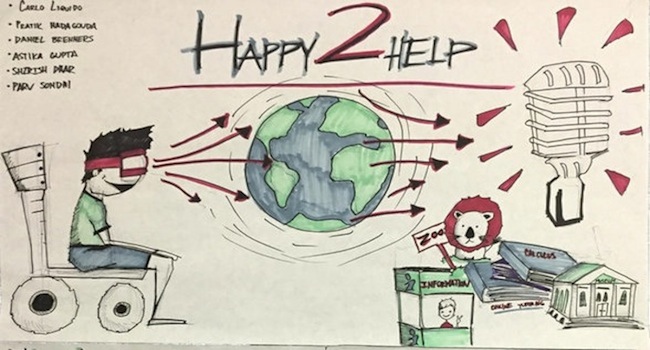 • CARLO LIQUIDO
• PRATIK NADAGOUDA
• DANIEL BRENNERS
• ASTIKA GUPTA
• SHIRISH DHAR
• PARV SONDHI
HAPPY 2 HELP
ZOO
INFORMATION
CALCULUS
ONLINE TUTORING
MUSEUM